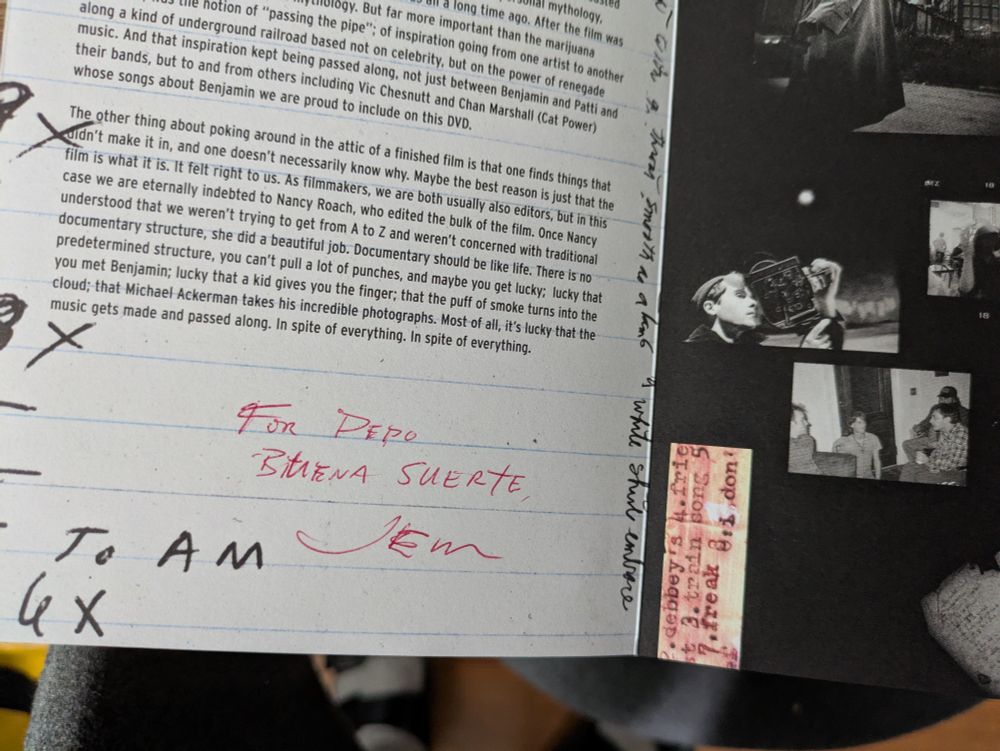 all a long time ago. After the film was
the notion of "passing the pipe"; of inspiration going from one artist to another
along a kind of underground railroad based not on celebrity, but on the power of renegade
music. And that inspiration kept being passed along, not just between Benjamin and Patti and
their bands, but to and from others including Vic Chesnutt and Chan Marshall (Cat Power)
whose songs about Benjamin we are proud to include on this DVD.
The other thing about poking around in the attic of a finished film is that one finds things that
didn't make it in, and one doesn't necessarily know why. Maybe the best reason is just that the
film is what it is. It felt right to us. As filmmakers, we are both usually also editors, but in this
case we are eternally indebted to Nancy Roach, who edited the bulk of the film. Once Nancy
understood that we weren't trying to get from A to Z and weren't concerned with traditional
documentary structure, she did a beautiful job. Documentary should be like life. There is no
predetermined structure, you can't pull a lot of punches, and maybe you get lucky; lucky that
you met Benjamin; lucky that a kid gives you the finger; that the puff of smoke turns into the
cloud; that Michael Ackerman takes his incredible photographs. Most of all, it's lucky that the
music gets made and passed along. In spite of everything. In spite of everything.
X
X
FOR PEPO
BUENA SUERTE,
JEM
TO AM
6 X
a white
debbey's 4.frie
3.train song 5
7.freak 8:i don'
18
18